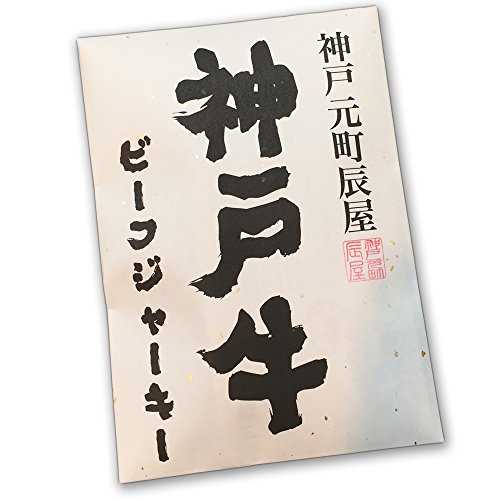 神戸元町辰屋
神戸牛
ビーフジャーキー
辰屋